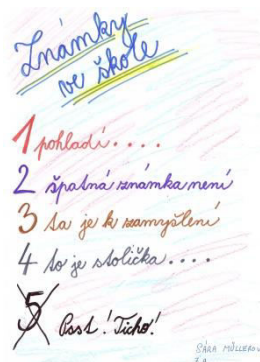 Známky
ve škole
1 pohladí....
2 špatná známka není
3 ta je k zamyšlení
4 to je stolička....
5 Psst! Ticho!
SÁRA MÜLLEROV